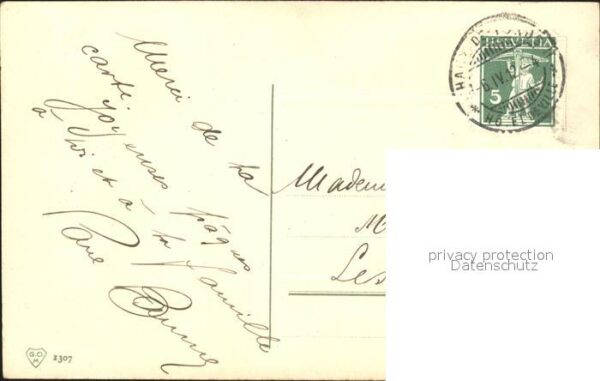 Merci de ta
carte. Joyeuses pâques
à toi et à ta famille
HELVETIA
5
Madem
M
Les
privacy protection
Datenschutz
G.O.
M.
1307